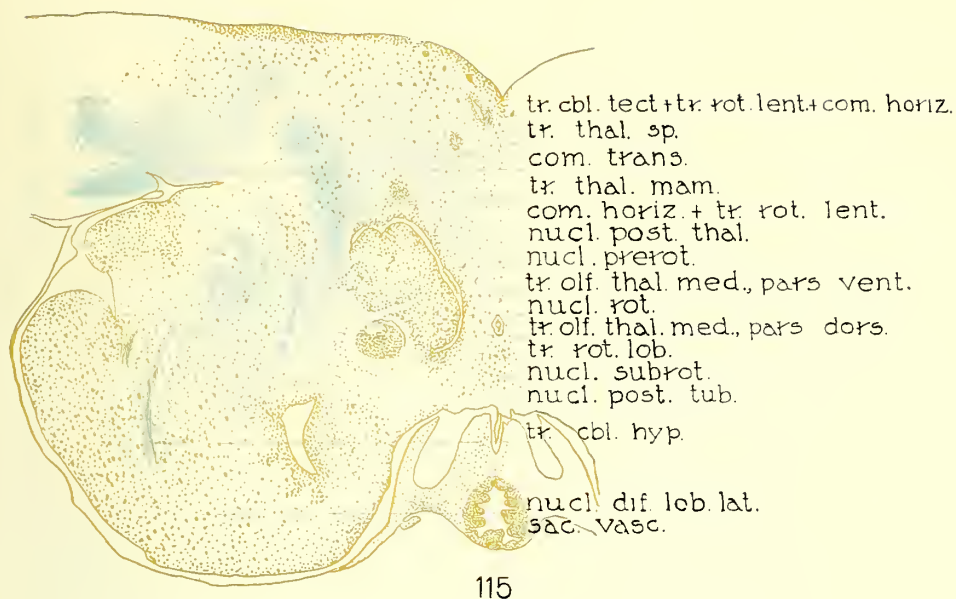 tr. cbl. tect + tr. rot. lent. + com. horiz.
tr. thal. sp.
com. trans.
tr. thal. mam.
com. horiz. + tr. rot. lent.
nucl. post. thal.
nucl. prerot.
tr. olf. thal. med., pars vent.
nucl. rot.
tr. olf. thal. med., pars dors.
tr. rot. lob.
nucl. subrot.
nucl. post. tub.
tr. cbl. hyp.
nucl. dif. lob. lat.
sac. vasc.
115